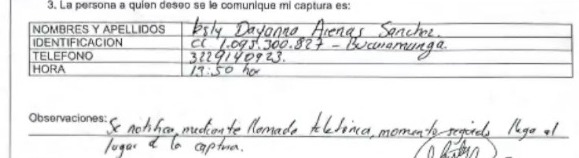 3. La persona a quien deseo se le comunique mi captura es:
NOMBRES Y APELLIDOS Esly Dayanna Arenas Sanchez.
IDENTIFICACION CC 1.095.300.827 - Bucaramanga.
TELEFONO 3229140923.
HORA 13:50 hor
Observaciones: Se notifica, mediante llamada telefonica, momento seguido llega al
lugar d la captura.